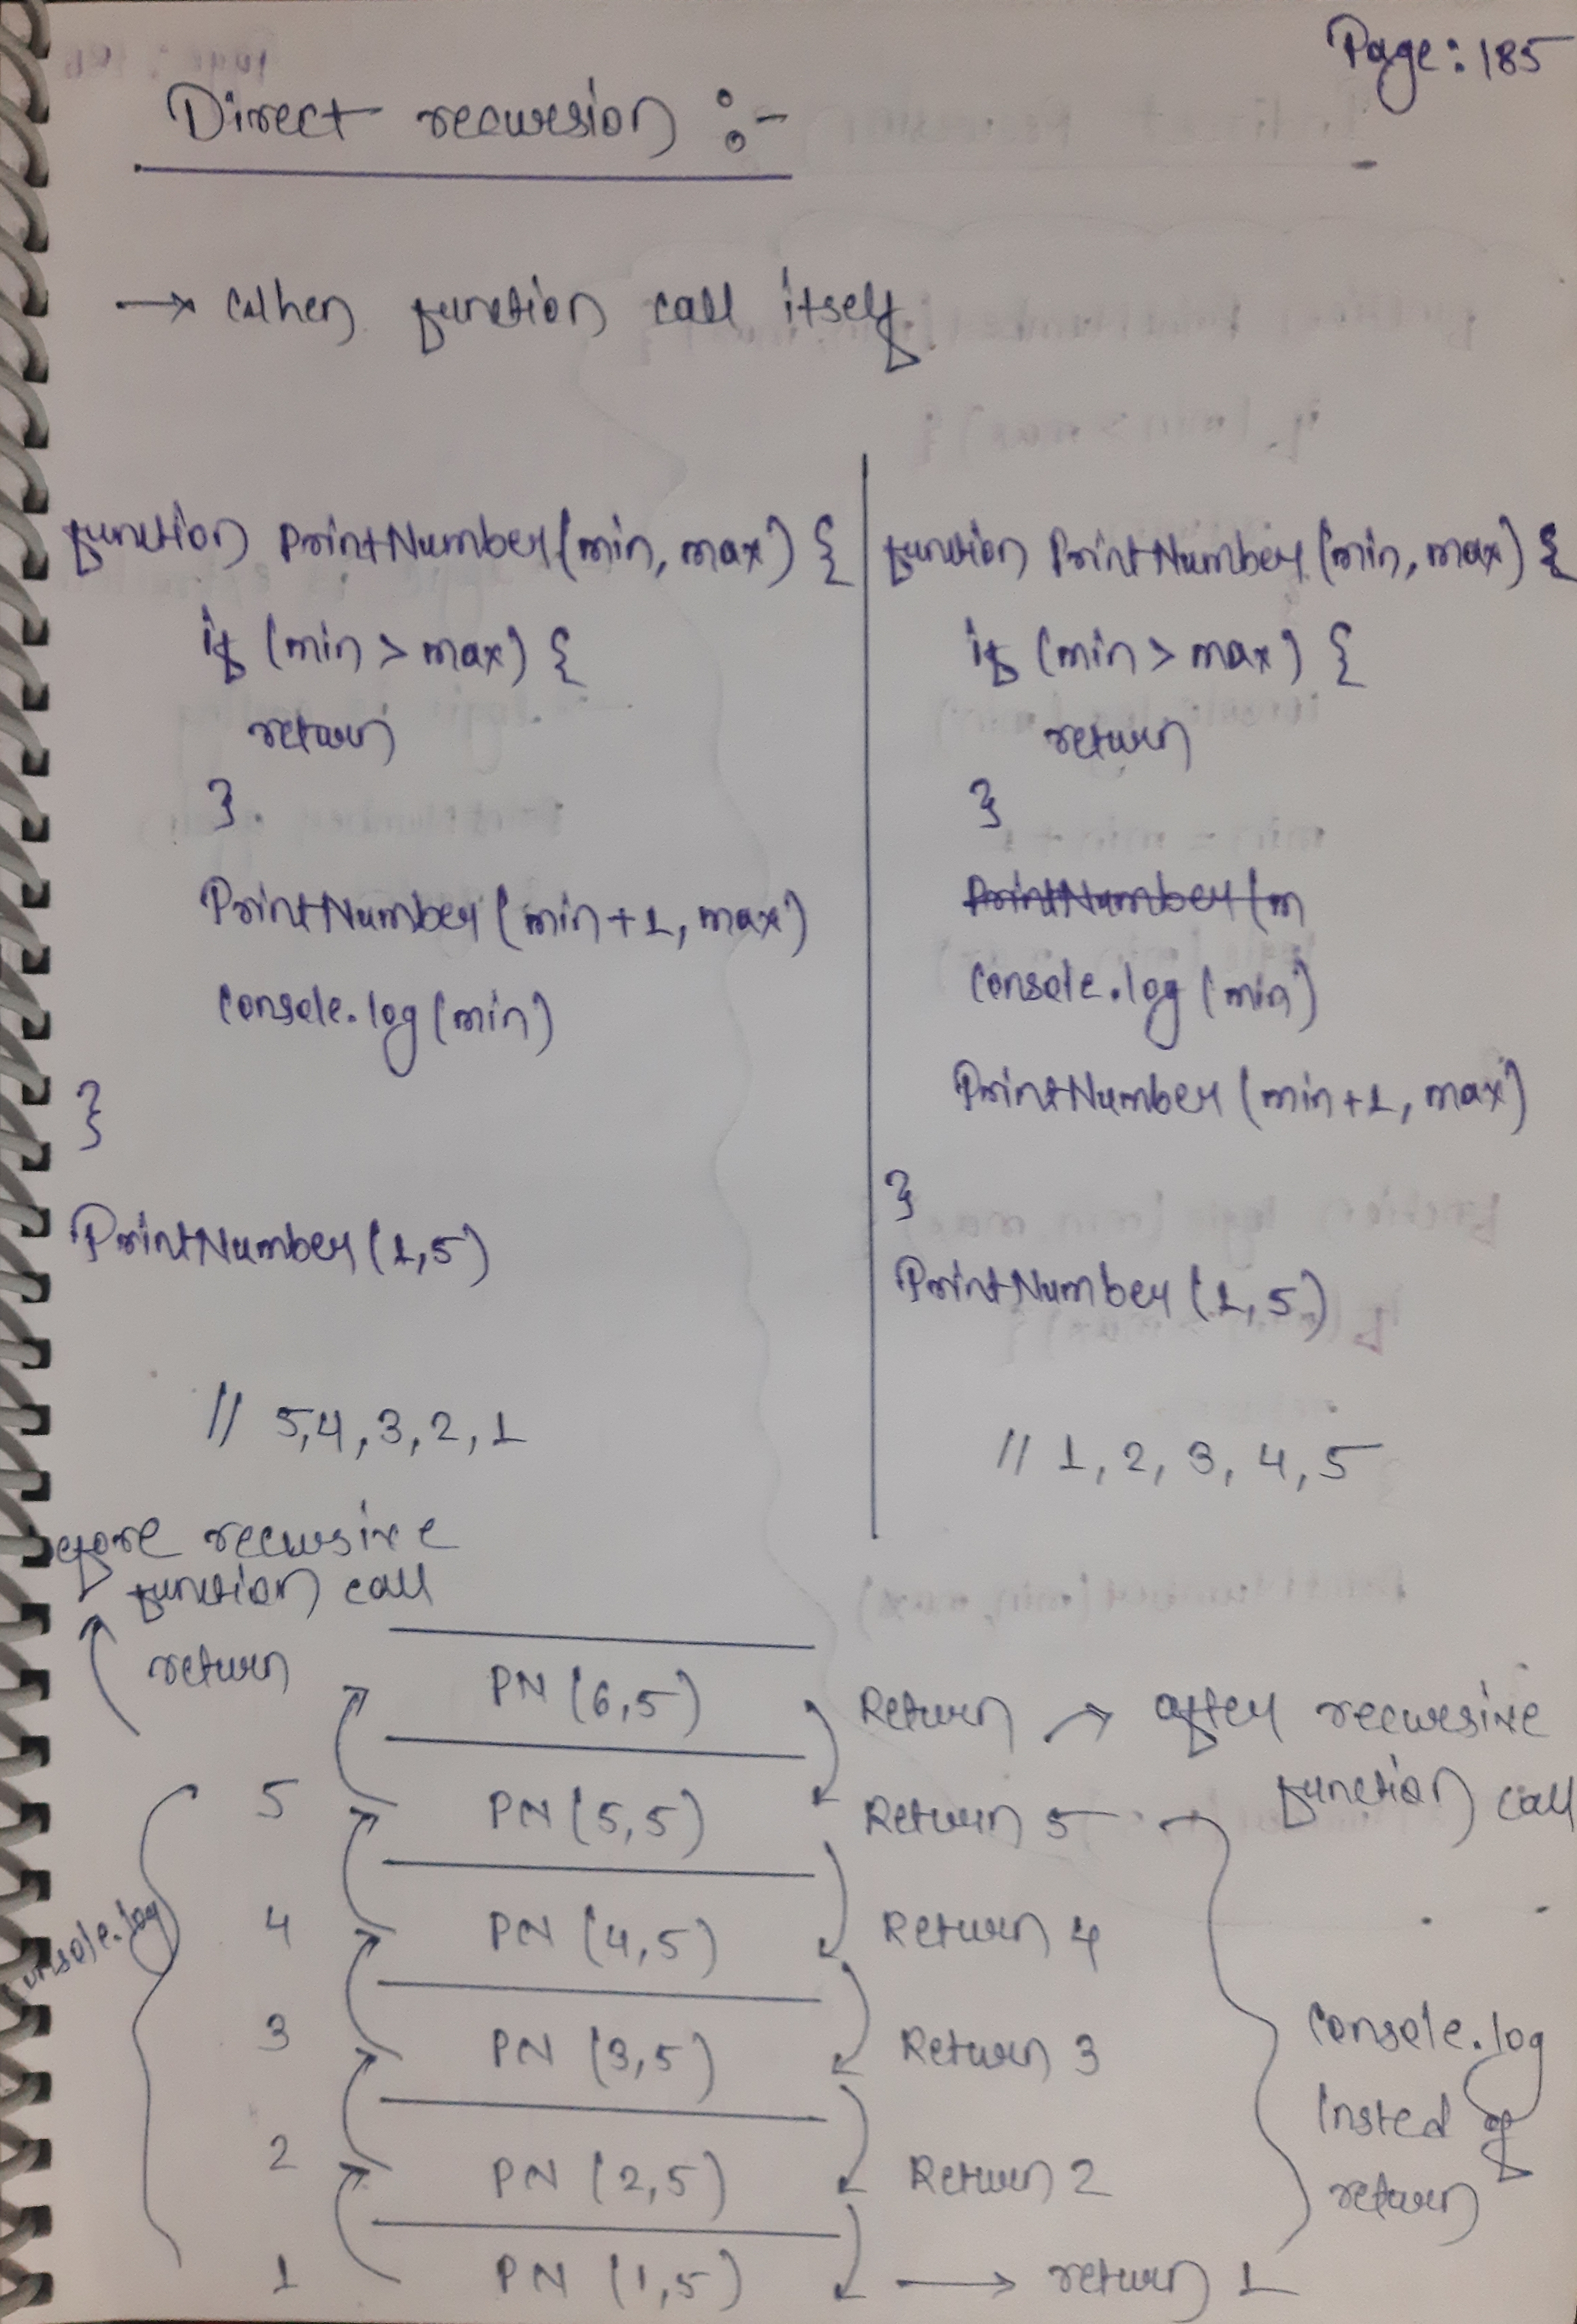 Page: 185
Direct recursion :-
→ When function call itself
function PrintNumber(min, max) {
if (min > max) {
return
}
PrintNumber(min+1, max)
console.log(min)
}
PrintNumber(1,5)
// 5,4,3,2,1
function PrintNumber(min, max) {
if (min > max) {
return
}
PrintNumber(m
console.log(min)
PrintNumber(min+1, max)
}
PrintNumber(1,5)
// 1, 2, 3, 4, 5
before recursive
function call
return
5
4
3
2
1
console.log
PN (6,5)
PN (5,5)
PN (4,5)
PN (3,5)
PN (2,5)
PN (1,5)
Return → after recursive
function call
Return 5
Return 4
Return 3
Return 2
→ return 1
console.log
Insted of
return